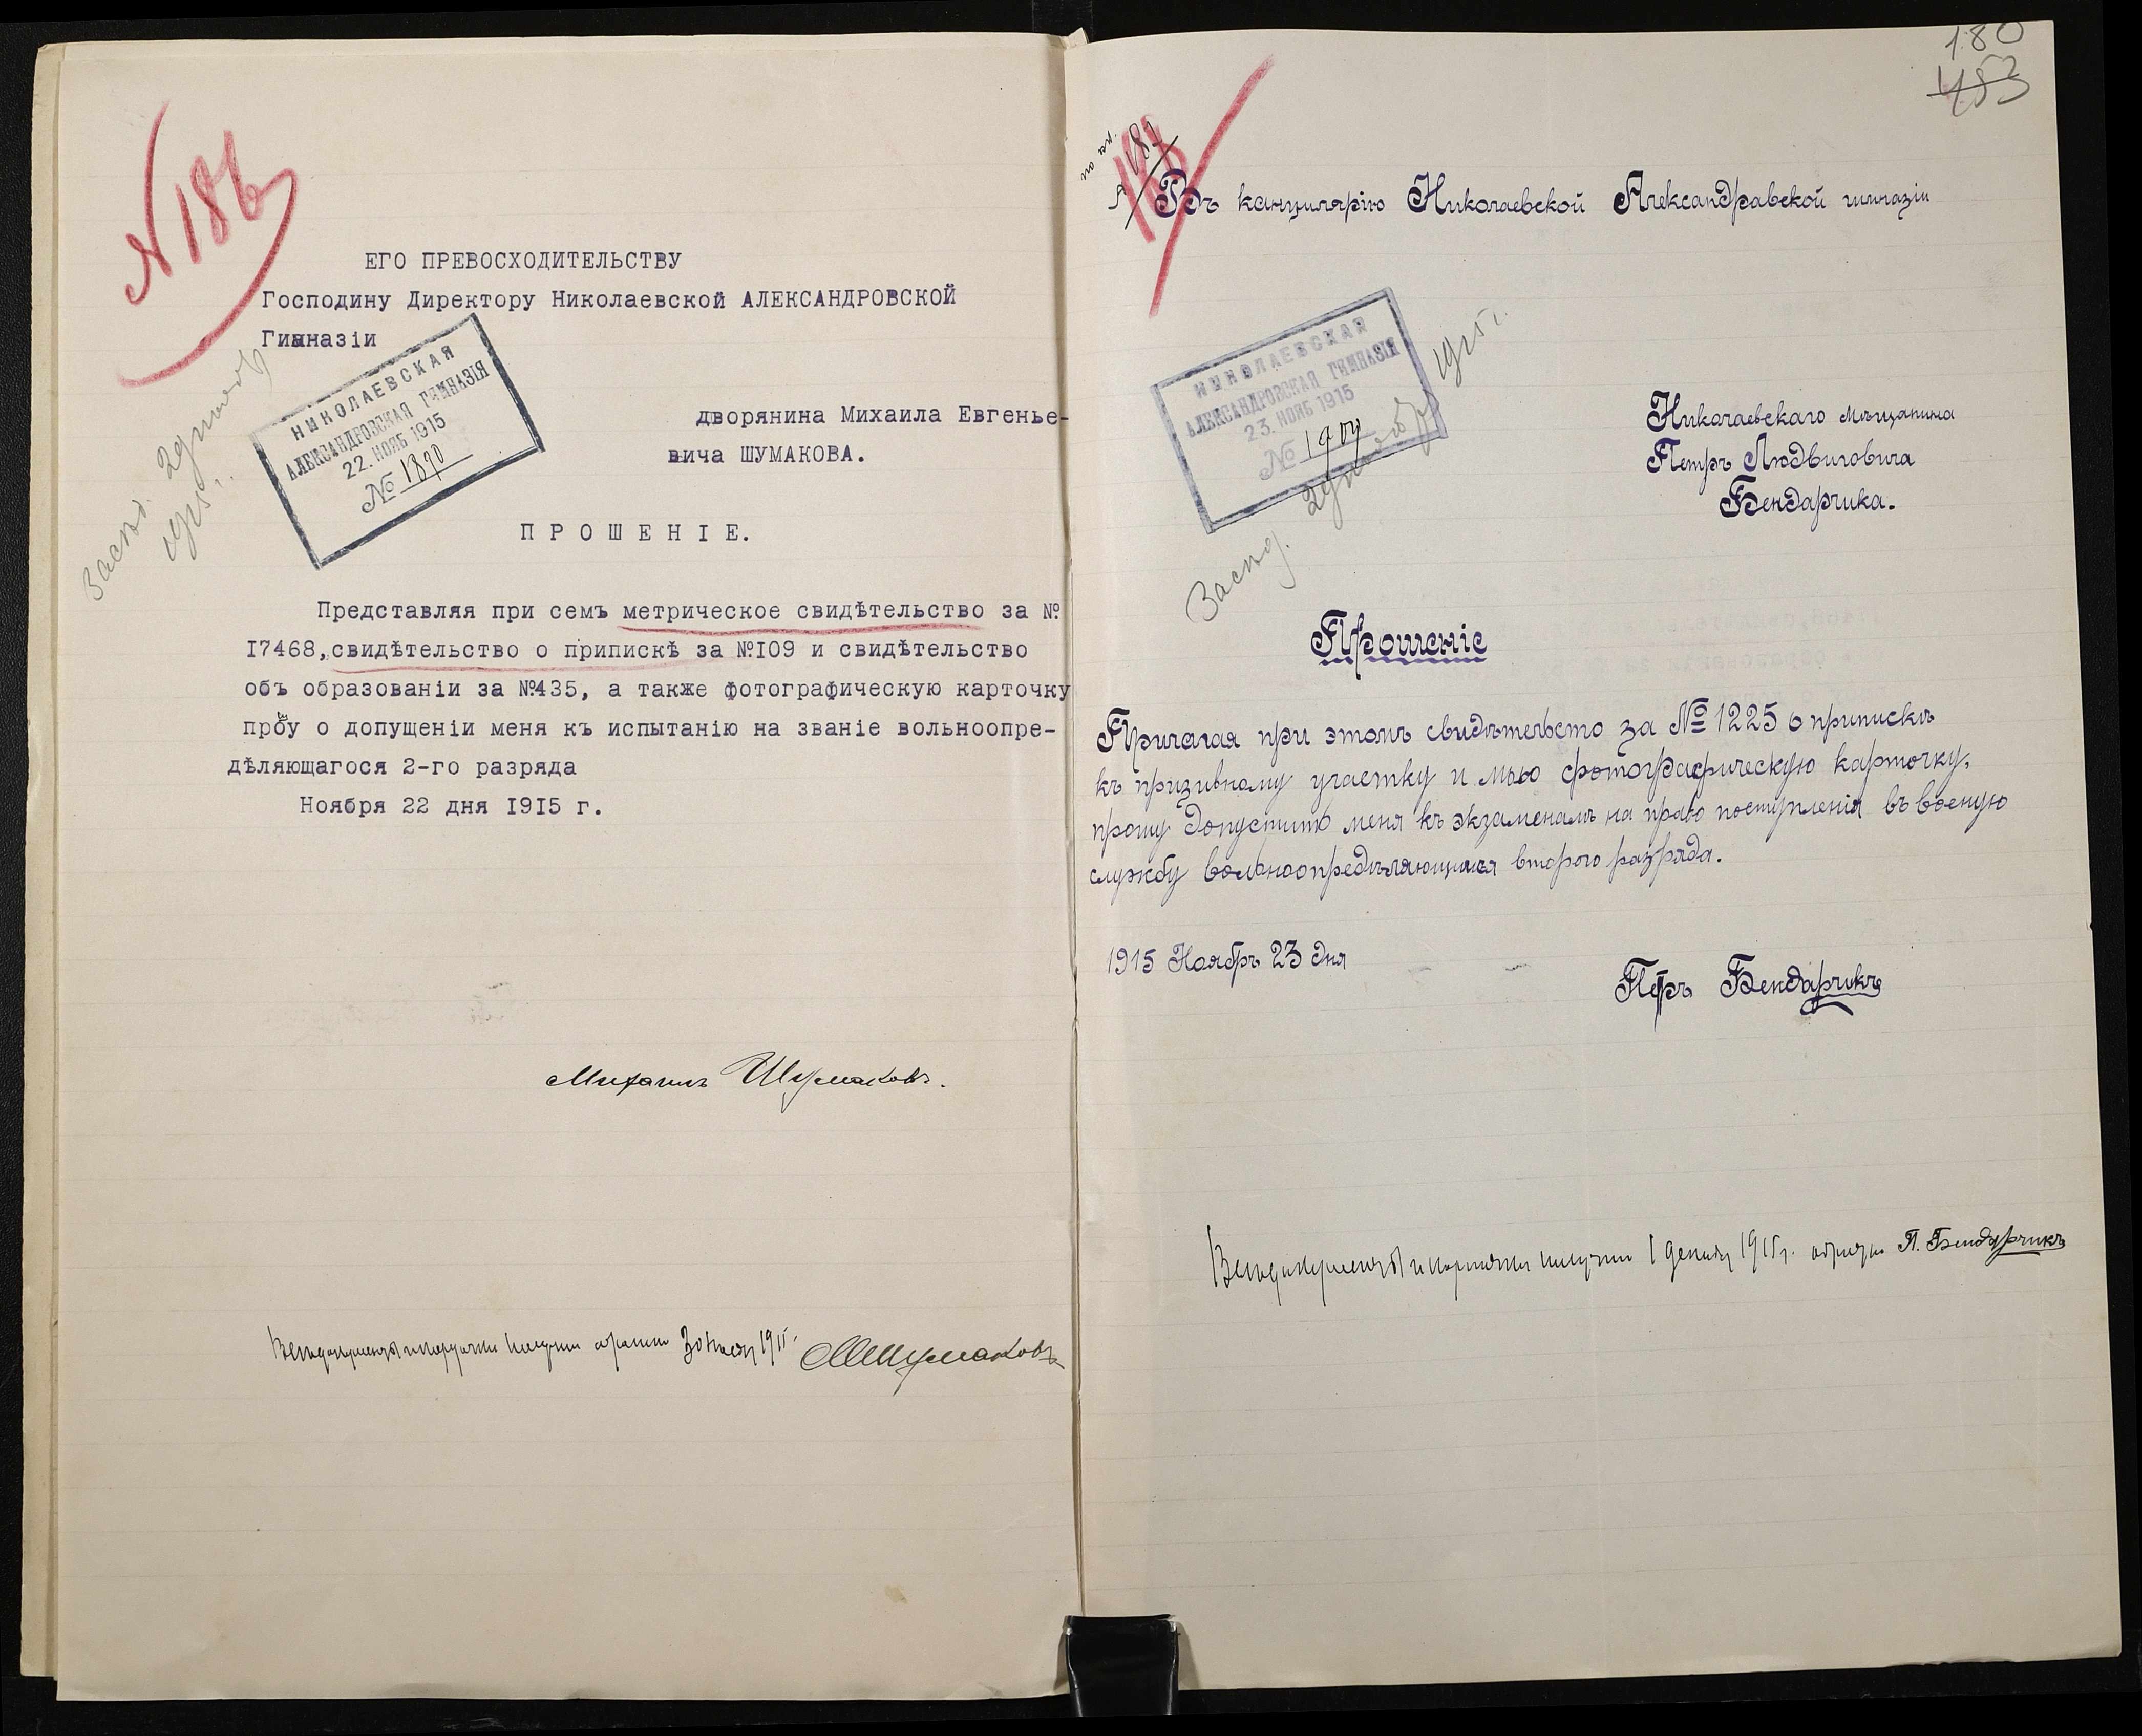 № 186
ЕГО ПРЕВОСХОДИТЕЛЬСТВУ
Господину Директору Николаевской АЛЕКСАНДРОВСКОЙ
Гимназіи
НИКОЛАЕВСКАЯ
АЛЕКСАНДРОВСКАЯ ГИМНАЗІЯ
22. НОЯБ 1915
№ 1890
дворянина Михаила Евгенье-
вича ШУМАКОВА.
ПРОШЕНІЕ.
Представляя при семъ метрическое свидѣтельство за №
17468, свидѣтельство о припискѣ за №109 и свидѣтельство
объ образованіи за №435, а также фотографическую карточку
прошу о допущеніи меня къ испытанію на званіе вольноопре-
дѣляющагося 2-го разряда
Ноября 22 дня 1915 г.
Михаилъ Шумаковъ.
получилъ обратно 30 Нояб 1915 МШумаковъ
180
453
187
Въ канцилярію Николаевской Александравской гимназіи
НИКОЛАЕВСКАЯ
АЛЕКСАНДРОВСКАЯ ГИМНАЗІЯ
23. НОЯБ 1915
№ 1909
1915 г.
Николаевскаго мѣщанина
Петръ Людвиговича
Бендарчика.
Прошеніе
Прилагая при этомъ свидѣтельсто за № 1225 о припискѣ
къ призивному участку и мью фотографическую карточку,
прошу допустить меня къ экзаменамъ на право поступленія въ военую
службу вольноопредѣляющимся второго разряда.
1915 Ноябръ 23 дня
Петръ Бендарчикъ
получилъ 1 декабр 1915 г. обратно П. Бендарчикъ